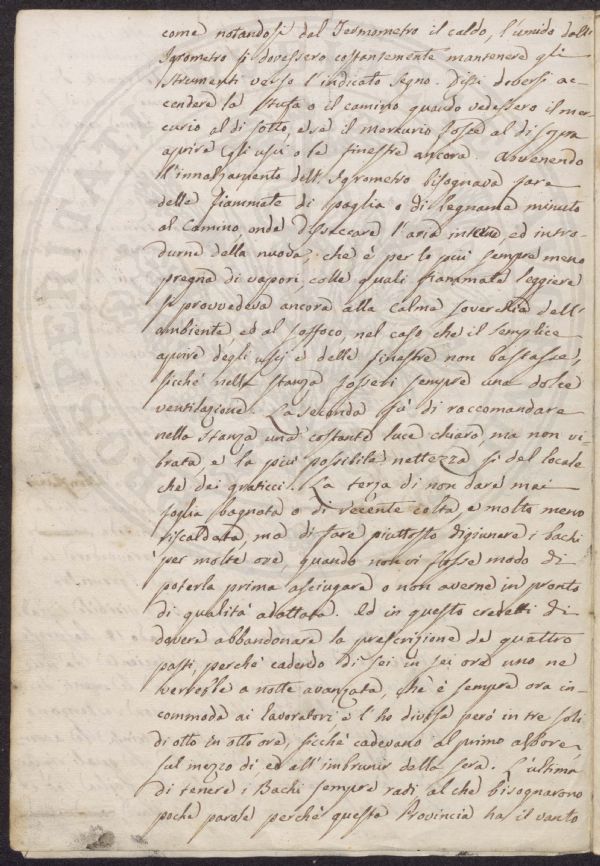 come notandosi dal Termometro il caldo, l'umido dall'
Igrometro si dovessero costantemente mantenere gli
strumenti verso l'indicato segno. Dissi doversi ac-
cendere la stufa o il camino quando vedessero il mer-
curio al di sotto, e se il mercurio fosse al di sopra
aprire gli usci o le finestre ancora. Avvenendo
l'innalzamento dell'Igrometro bisognava fare
delle fiammate di paglia o di legname minuto
al Camino, onde disseccare l'aria interna, ed intro-
durne della nuova, che è per lo più sempre meno
pregna di vapori, colle quali fiammate leggiere
si provvedeva ancora alla calma soverchia dell'
ambiente, ed al soffoco, nel caso che il semplice
aprire degli usci e delle finestre non bastasse,
sicché nella stanza fossevi sempre una dolce
ventilazione. La seconda fù di raccomandare
nella stanza una costante luce chiara, ma non vi-
brata, e la più possibile nettezza sì del locale
che dei graticci. La terza di non dare mai
foglia bagnata o di recente colta, e molto meno
riscaldata, ma di fare piuttosto digiunare i bachi
per molte ore quando non vi fosse modo di
poterla prima asciugare o non averne in pronto
di qualità adattata. Ed in questo credetti di
dovere abbandonare la prescrizione de quattro
pasti, perché cadendo di sei in sei ore uno ne
verrebbe a notte avanzata, che è sempre ora in-
commoda ai lavoratori e l'ho divisa però in tre soli
di otto in otto ore, sicché cadevano al primo albore,
sul mezzo dì, ed all'imbrunir della sera. L'ultima
di tenere i Bachi sempre radi al che bisognarono
poche parole perché questa Provincia ha il vanto